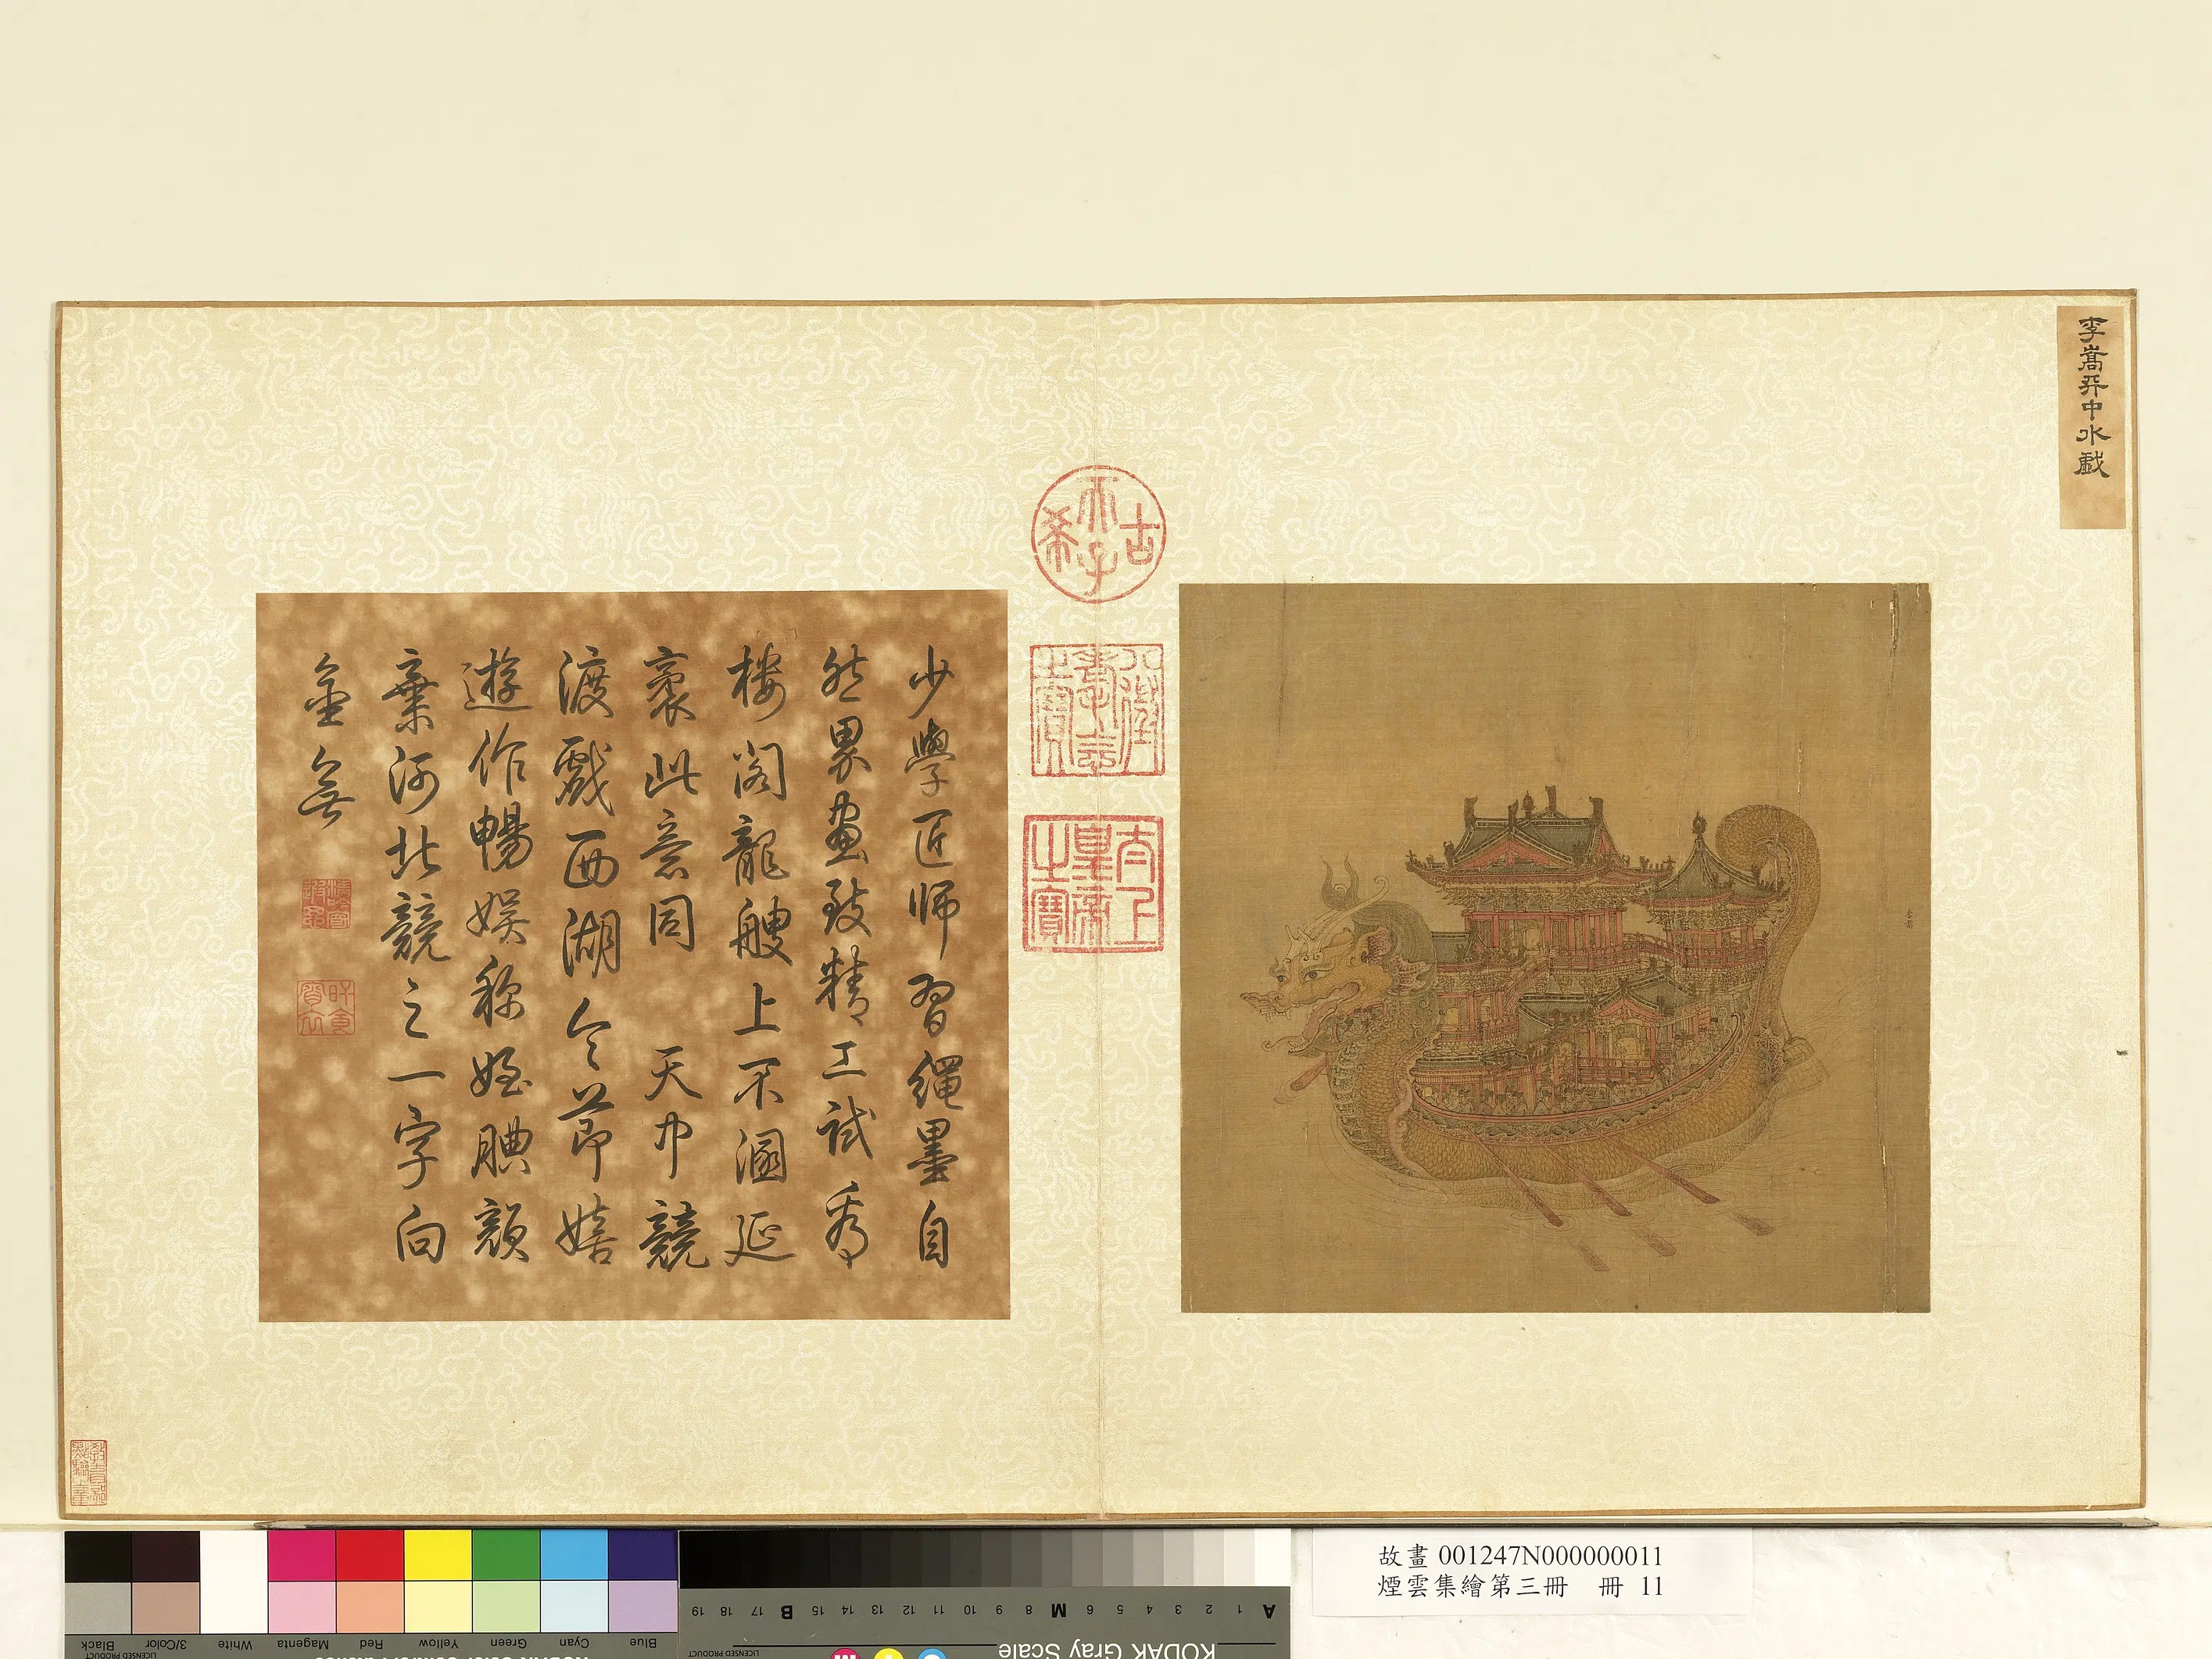 李嵩天中水戲
古希天子
八徵耄念之寶
太上皇帝之寶
李嵩
少學匠師習繩墨自
然界畫致精工試看
樓閣龍艘上不溷延
袤此意同 天中競
渡戲西湖令節嬉
遊作暢娛稱姪腆顏
棄河北競之一字向
金無
故畫 001247N000000011
煙雲集繪第三冊 冊 11
Black
3/Color
White
Magenta
Red
Yellow
Green
Cyan
Blue
LICENSED PRODUCT
KODAK Gray Scale
A 1 2 3 4 5 6 M 8 9 10 11 12 13 14 15 B 17 18 19
LICENSED PRODUCT